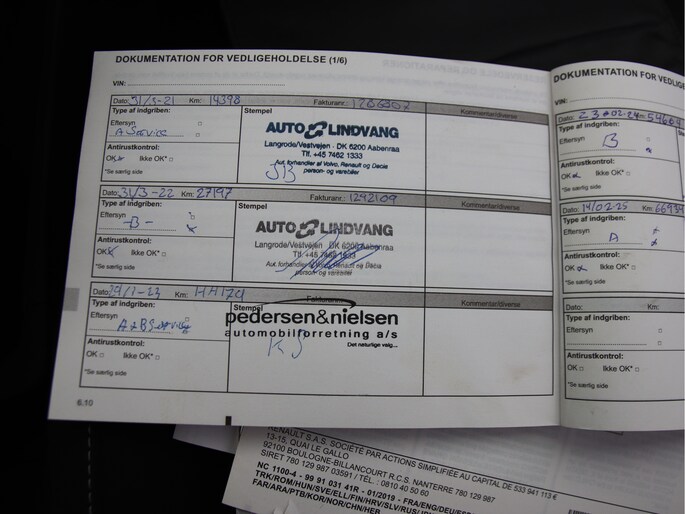 DOKUMENTATION FOR VEDLIGEHOLDELSE (1/6)
VIN:
Dato: 31/3-21 Km: 14398 Fakturanr.:
Type af indgriben:
Eftersyn
A Service
Antirustkontrol:
OK Ikke OK*
*Se særlig side
Stempel
AUTO LINDVANG
Langrode/Vestvejen · DK 6200 Aabenraa
Tlf. +45 7462 1333
Aut. forhandler af Volvo, Renault og Dacia
person- og varebiler
Kommentar/diverse
Dato: 31/3-22 Km: 27197 Fakturanr.: 1242109
Type af indgriben:
Eftersyn
-B-
Antirustkontrol:
OK Ikke OK*
*Se særlig side
Stempel
AUTO LINDVANG
Langrode/Vestvejen · DK 6200 Aabenraa
Tlf. +45 7462 1333
Aut. forhandler af Volvo, Renault og Dacia
person- og varebiler
Kommentar/diverse
Dato: Km: Fakturanr.:
Type af indgriben:
Eftersyn
Antirustkontrol:
OK Ikke OK*
*Se særlig side
Stempel
pedersen&nielsen
automobilforretning a/s
Det naturlige valg...
Kommentar/diverse
6.10
DOKUMENTATION FOR
VIN:
Dato: Km:
Type af indgriben:
Eftersyn
B
Antirustkontrol:
OK Ikke OK*
*Se særlig side
Dato: 14/02-25 Km: 66934
Type af indgriben:
Eftersyn
A
Antirustkontrol:
OK Ikke OK*
*Se særlig side
Type af indgriben:
Eftersyn
Antirustkontrol:
OK Ikke OK*
*Se særlig side
RENAULT S.A.S. SOCIÉTÉ PAR ACTIONS SIMPLIFIÉE AU CAPITAL DE 533 941 113 €
13-15, QUAI LE GALLO
92100 BOULOGNE-BILLANCOURT R.C.S. NANTERRE 780 129 987
SIRET 780 129 987 03591 / TÉL. : 0810 40 50 60
NC 1100-4 - 99 91 031 41R - 01/2019 - FRA/ENG/DEU/
TRK/ROM/HUN/SVE/ELL/FIN/HRV/SLV/RUS/
FAR/ARA/PTB/KOR/NOR/CHN/HER